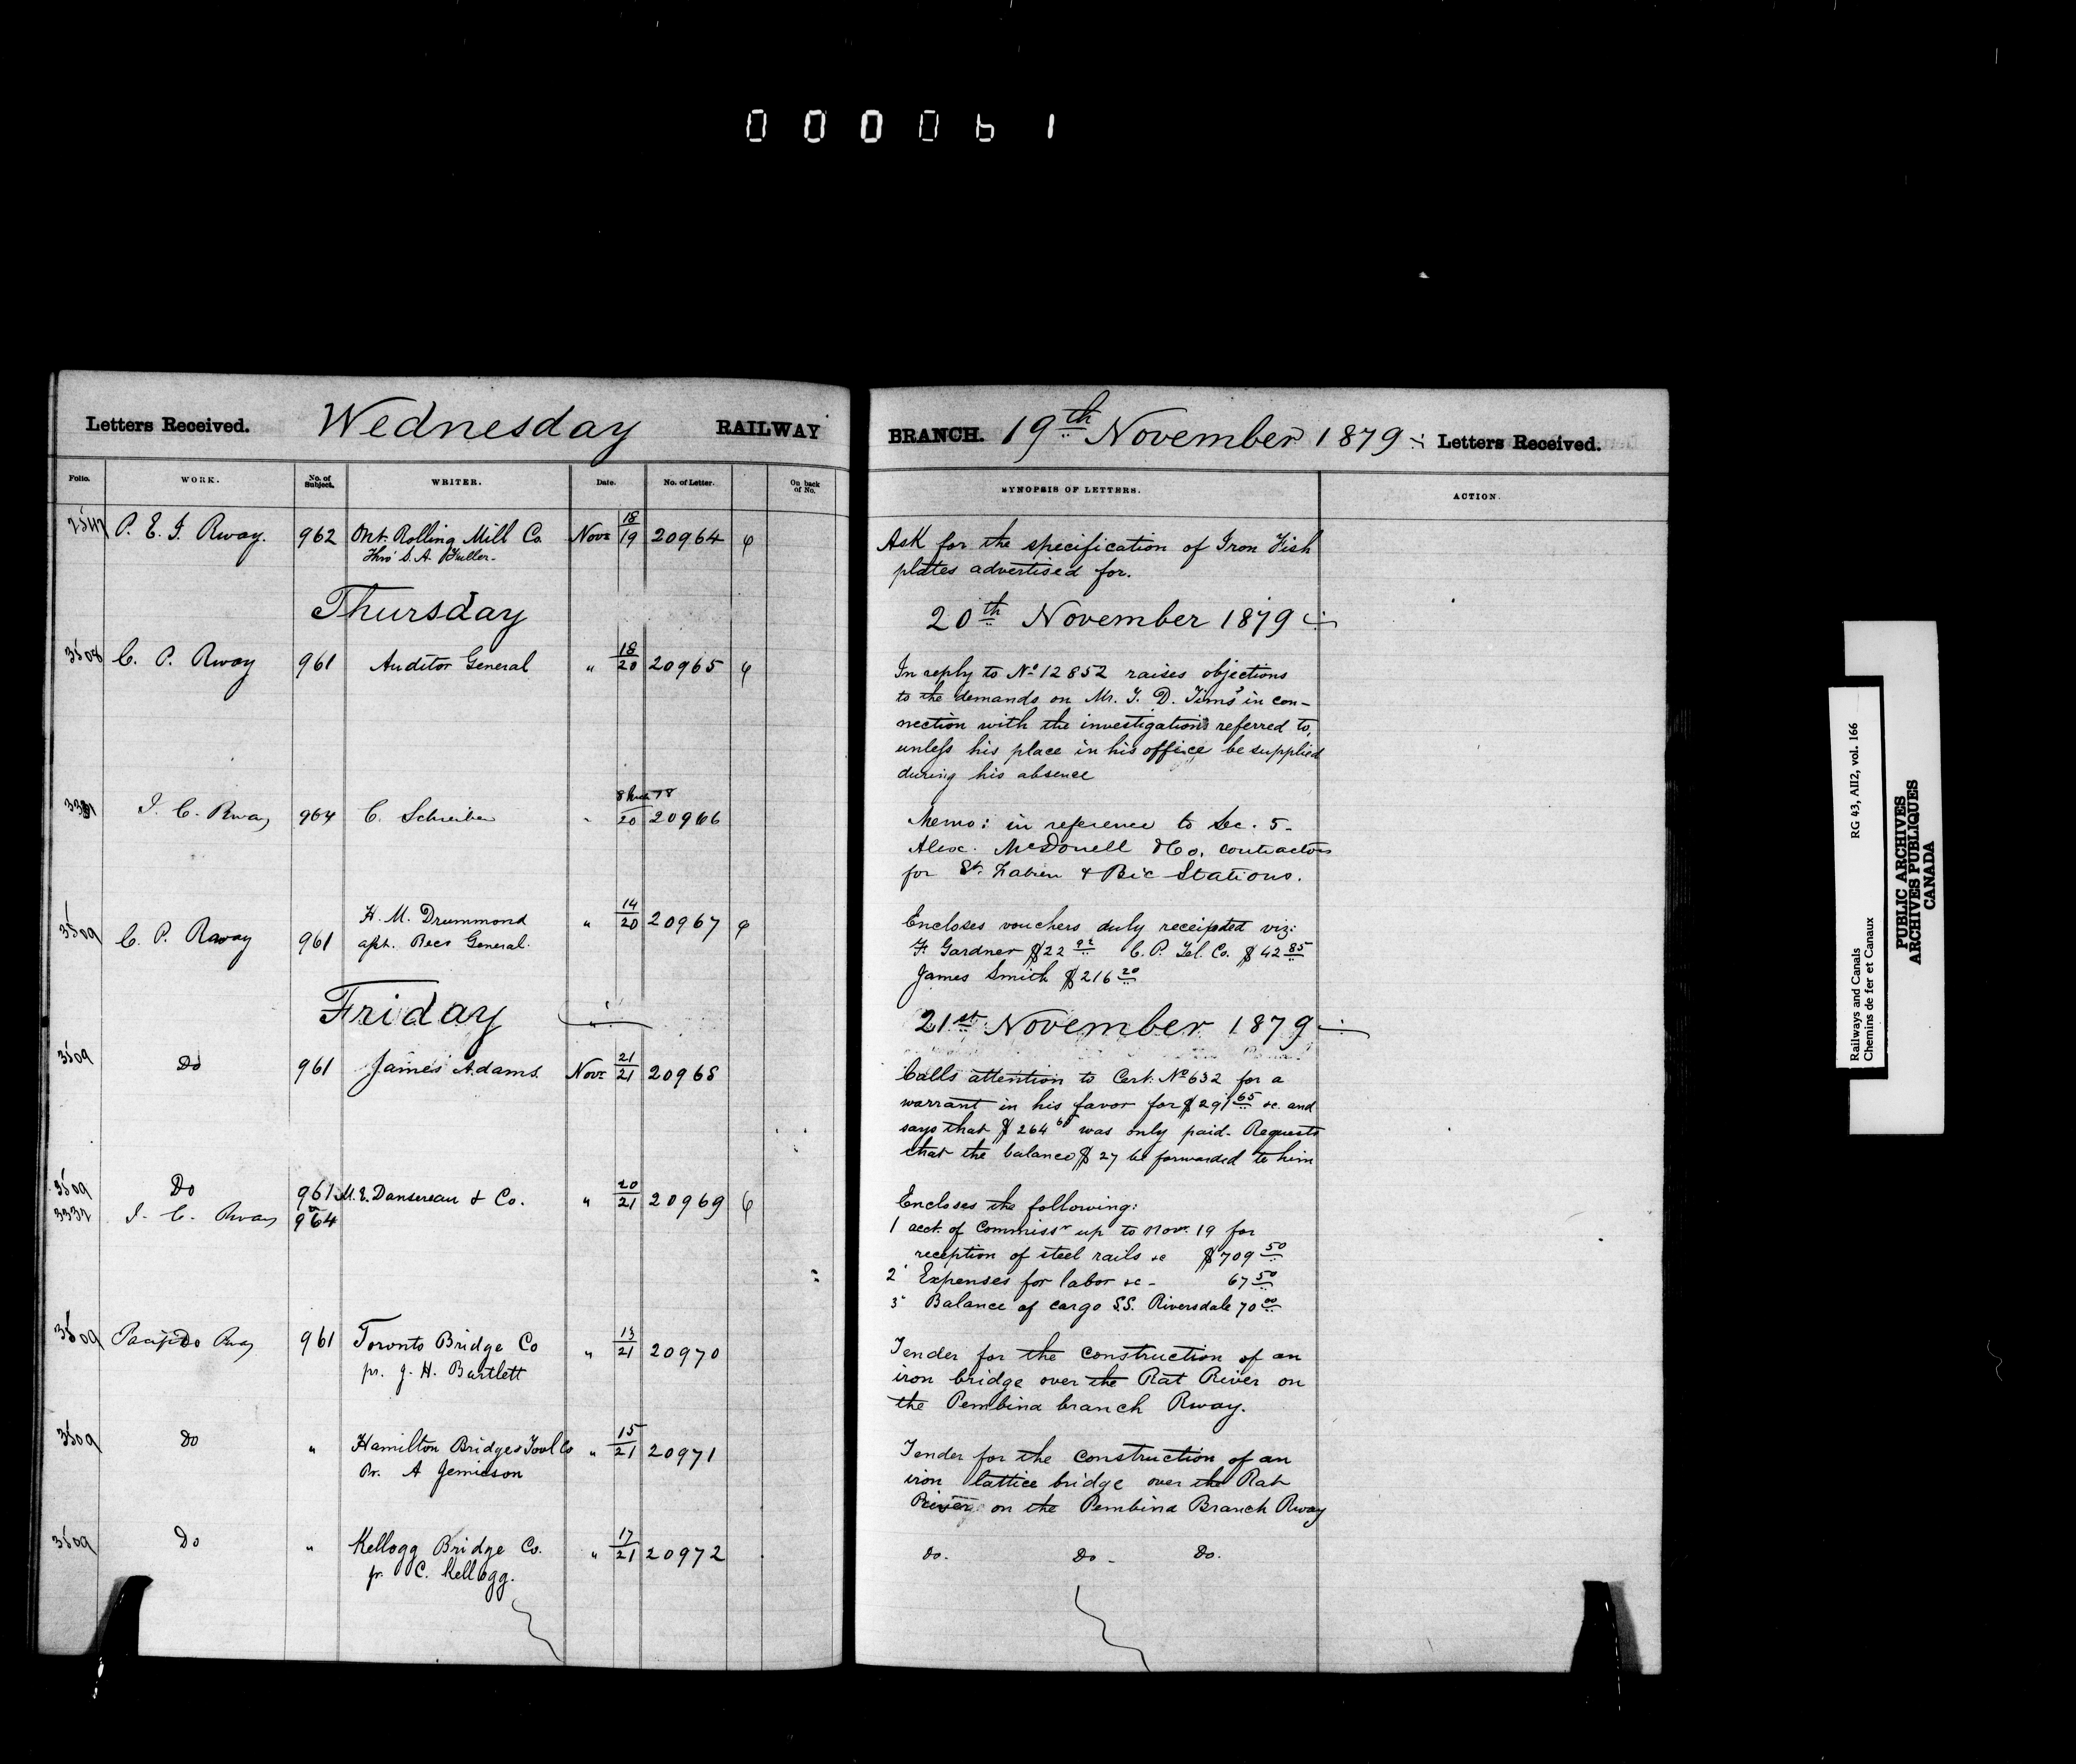 000061
Letters Received. Wednesday RAILWAY
Folio. WORK. No. of Subject. WRITER. Date. No. of Letter. On back of No.
P. E. I. Rway. 962 Ont. Rolling Mill Co. Novr 18/19 20964
Thro' S. A. Fuller.
Thursday
3508 C. P. Rway 961 Auditor General " 18/20 20965
I. C. Rway 964 C. Schreiber " 20 20966
3509 C. P. Rway 961 H. M. Drummond " 14/20 20967
asst. Recr General.
Friday
3509 Do 961 James Adams. Novr 21/21 20968
3509 Do 961 M. E. Dansereau & Co. " 20/21 20969
3332 I. C. Rway 964
3509 Rway 961 Toronto Bridge Co " 13/21 20970
pr. J. H. Bartlett
3509 Do " Hamilton Bridge & Tool Co " 15/21 20971
Pr. A Jemieson
3509 Do " Kellogg Bridge Co. " 17/21 20972
pr. C. Kellogg.
BRANCH. 19th November 1879 Letters Received.
SYNOPSIS OF LETTERS. ACTION.
Ask for the specification of Iron Fish
plates advertised for.
20th November 1879
In reply to No 12852 raises objections
to the demands on Mr. T. D. Tims' in con-
nection with the investigations referred to,
unless his place in his office be supplied
during his absence
Memo: in reference to Sec. 5-
Alex. McDonell & Co. contractors
for St. Fabien & Bic Stations.
Encloses vouchers duly receipted viz:
F. Gardner $22 92 C. P. Tel. Co. $42 85
James Smith $216 20
21st November 1879
Calls attention to Cert. No 632 for a
warrant in his favor for $291 65 &c. and
says that $264 65 was only paid. Requests
that the balance $27 be forwarded to him
Encloses the following:
1 acct. of Commissr up to Novr. 19 for
reception of steel rails &c $709 50
2 Expenses for labor &c - 67 50
3 Balance of cargo S.S. Riversdale 70 00
Tender for the construction of an
iron bridge over the Rat River on
the Pembina branch Rway.
Tender for the construction of an
iron lattice bridge over the Rat
River on the Pembina Branch Rway
Do. Do - Do.
Railways and Canals RG 43, AII2, vol. 166
Chemins de fer et Canaux
PUBLIC ARCHIVES
ARCHIVES PUBLIQUES
CANADA